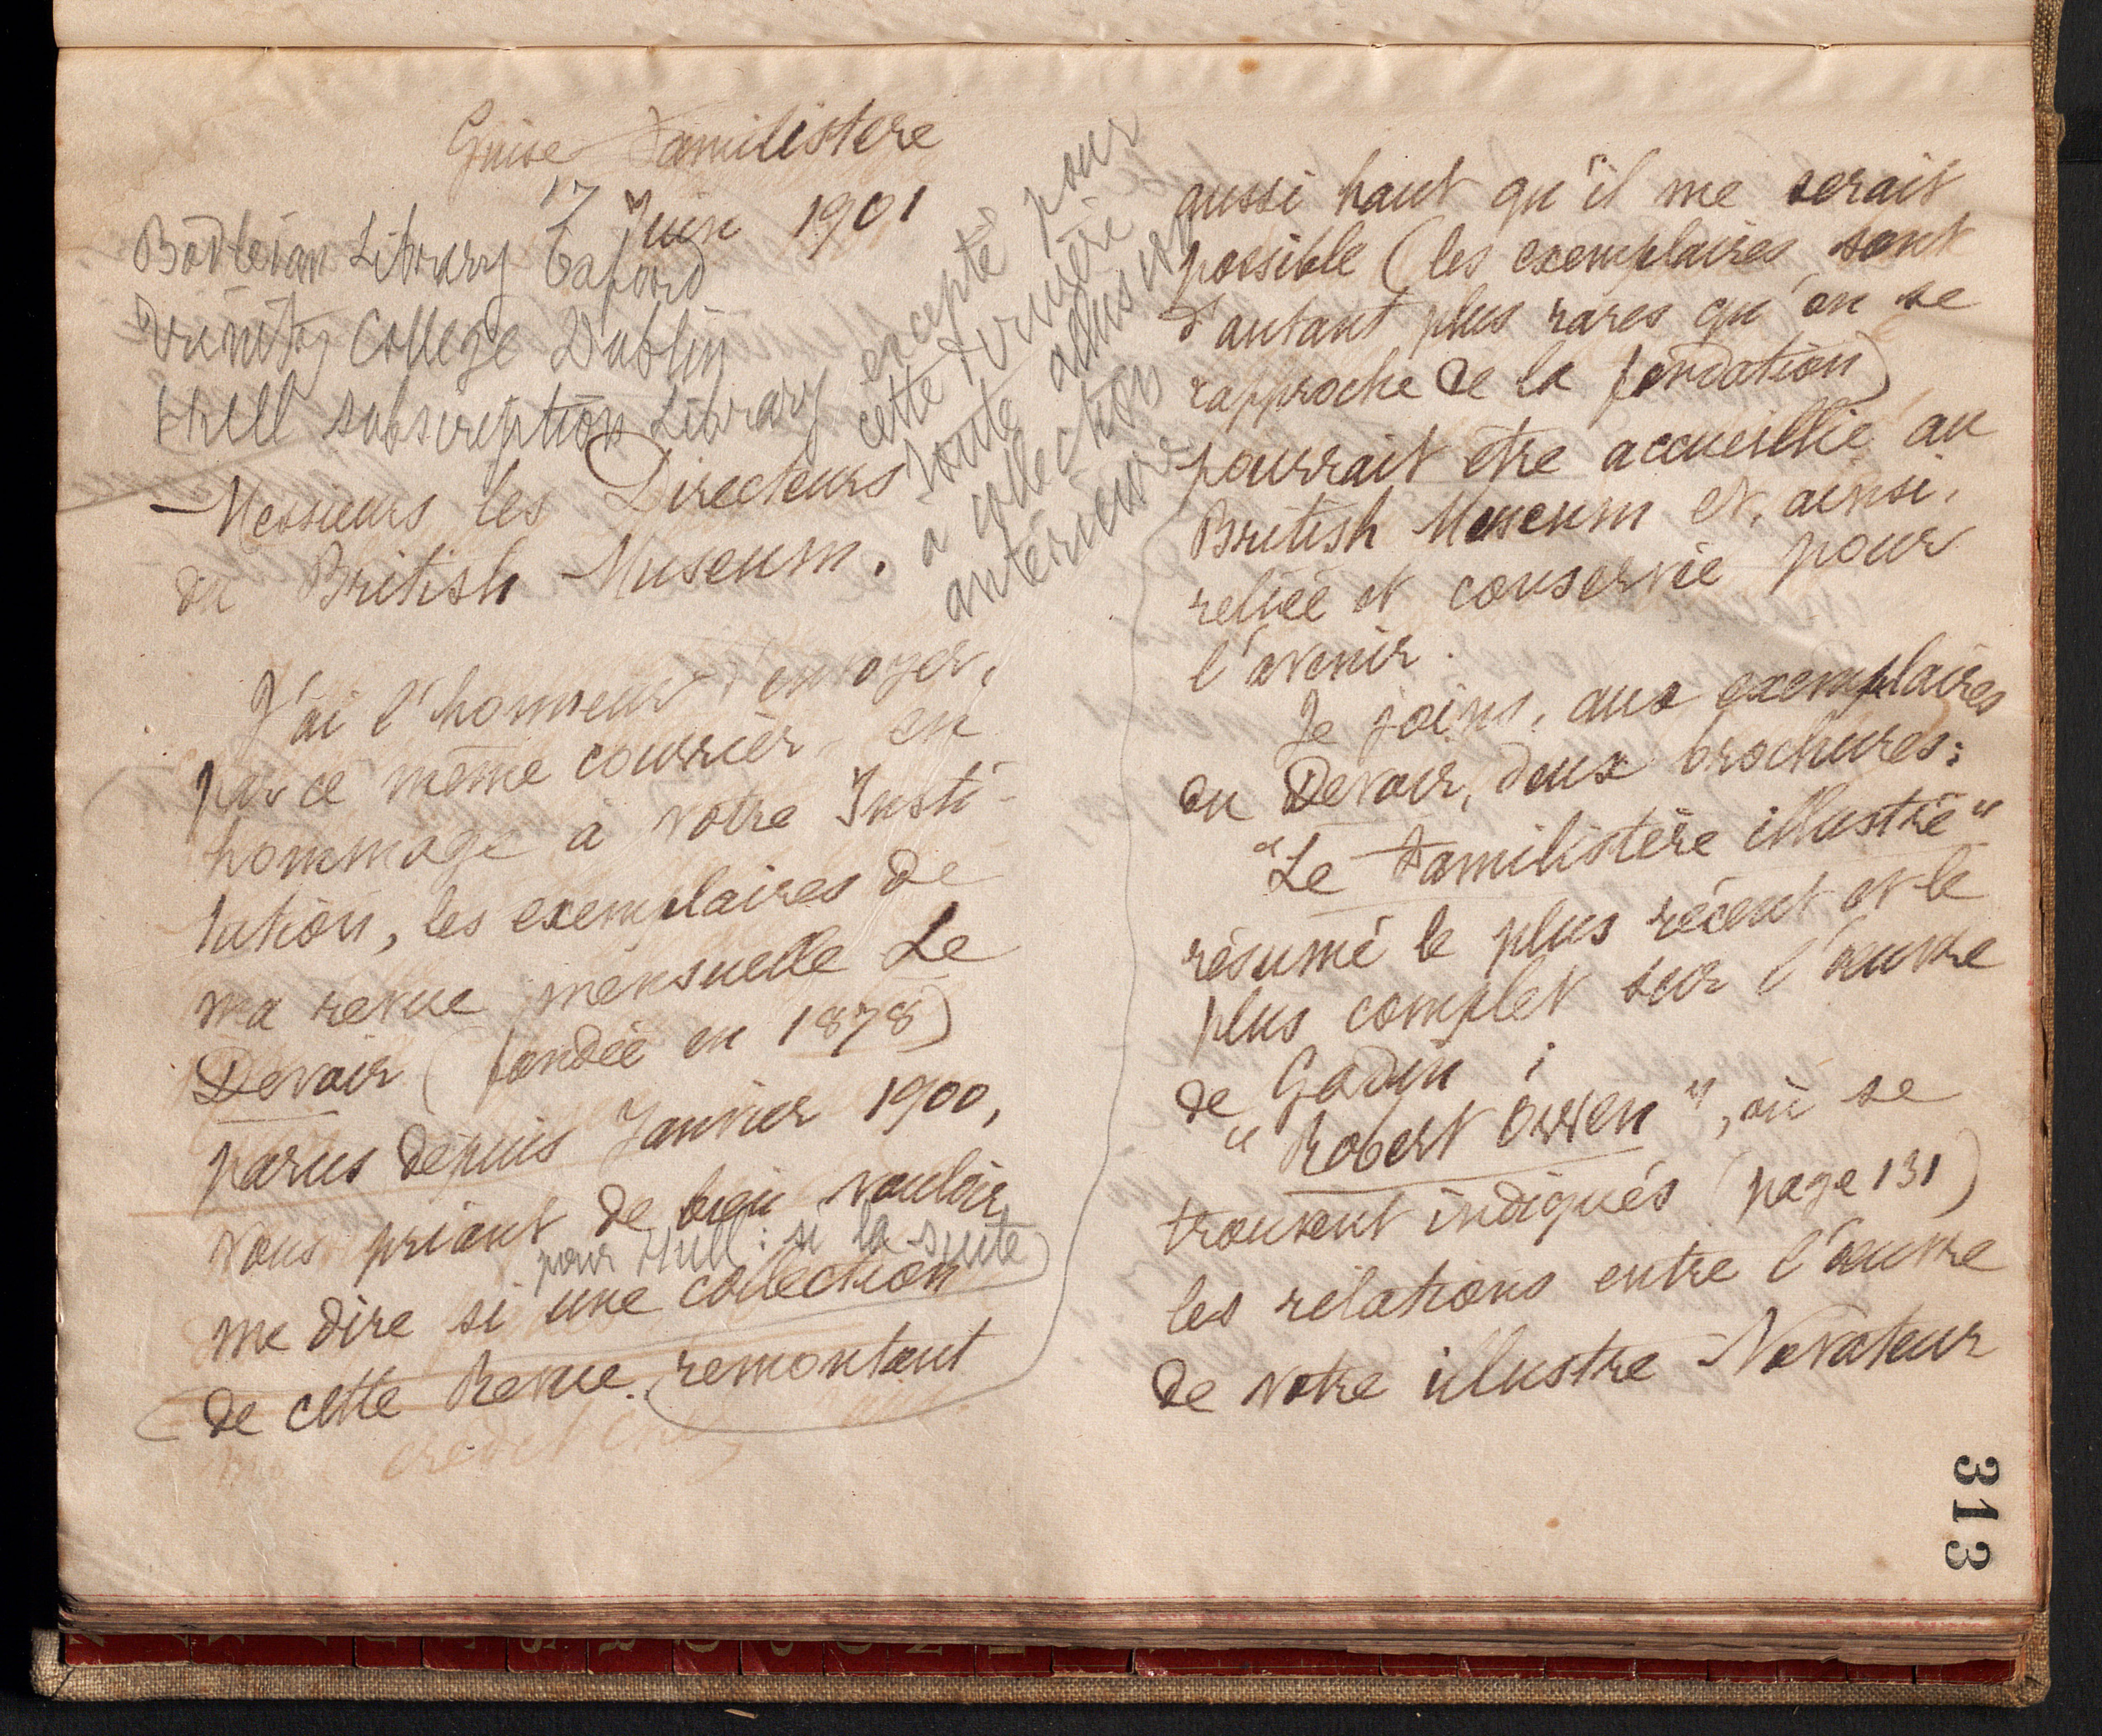 Guise Familistere
17 Juin 1901
Bodleian Library Oxford
Trinity College Dublin
Hull subscription Library
excepté pour
cette dernière
toute allusion
a collection
antérieure
Messieurs les Directeurs
du British Museum.
J'ai l'honneur d'envoyer,
par ce même courrier en
hommage à votre Insti-
tution, les exemplaires de
ma revue mensuelle Le
Devoir (fondée en 1878)
parus depuis Janvier 1900,
vous priant de bien vouloir
pour Hull : si la suite
me dire si une collection
de cette Revue remontant
aussi haut qu'il me serait
possible (les exemplaires sont
d'autant plus rares qu'on se
rapproche de la fondation)
pourrait etre accueillie au
British Museum et, ainsi,
reliée et conservée pour
l'avenir.
Je joins, aux exemplaires
du Devoir, deux brochures:
"Le Familistère illustré"
résumé le plus récent et le
plus complet sur l'œuvre
de Godin ;
"Robert Owen", où se
trouvent indiqués (page 131)
les relations entre l'œuvre
de votre illustre Novateur
313